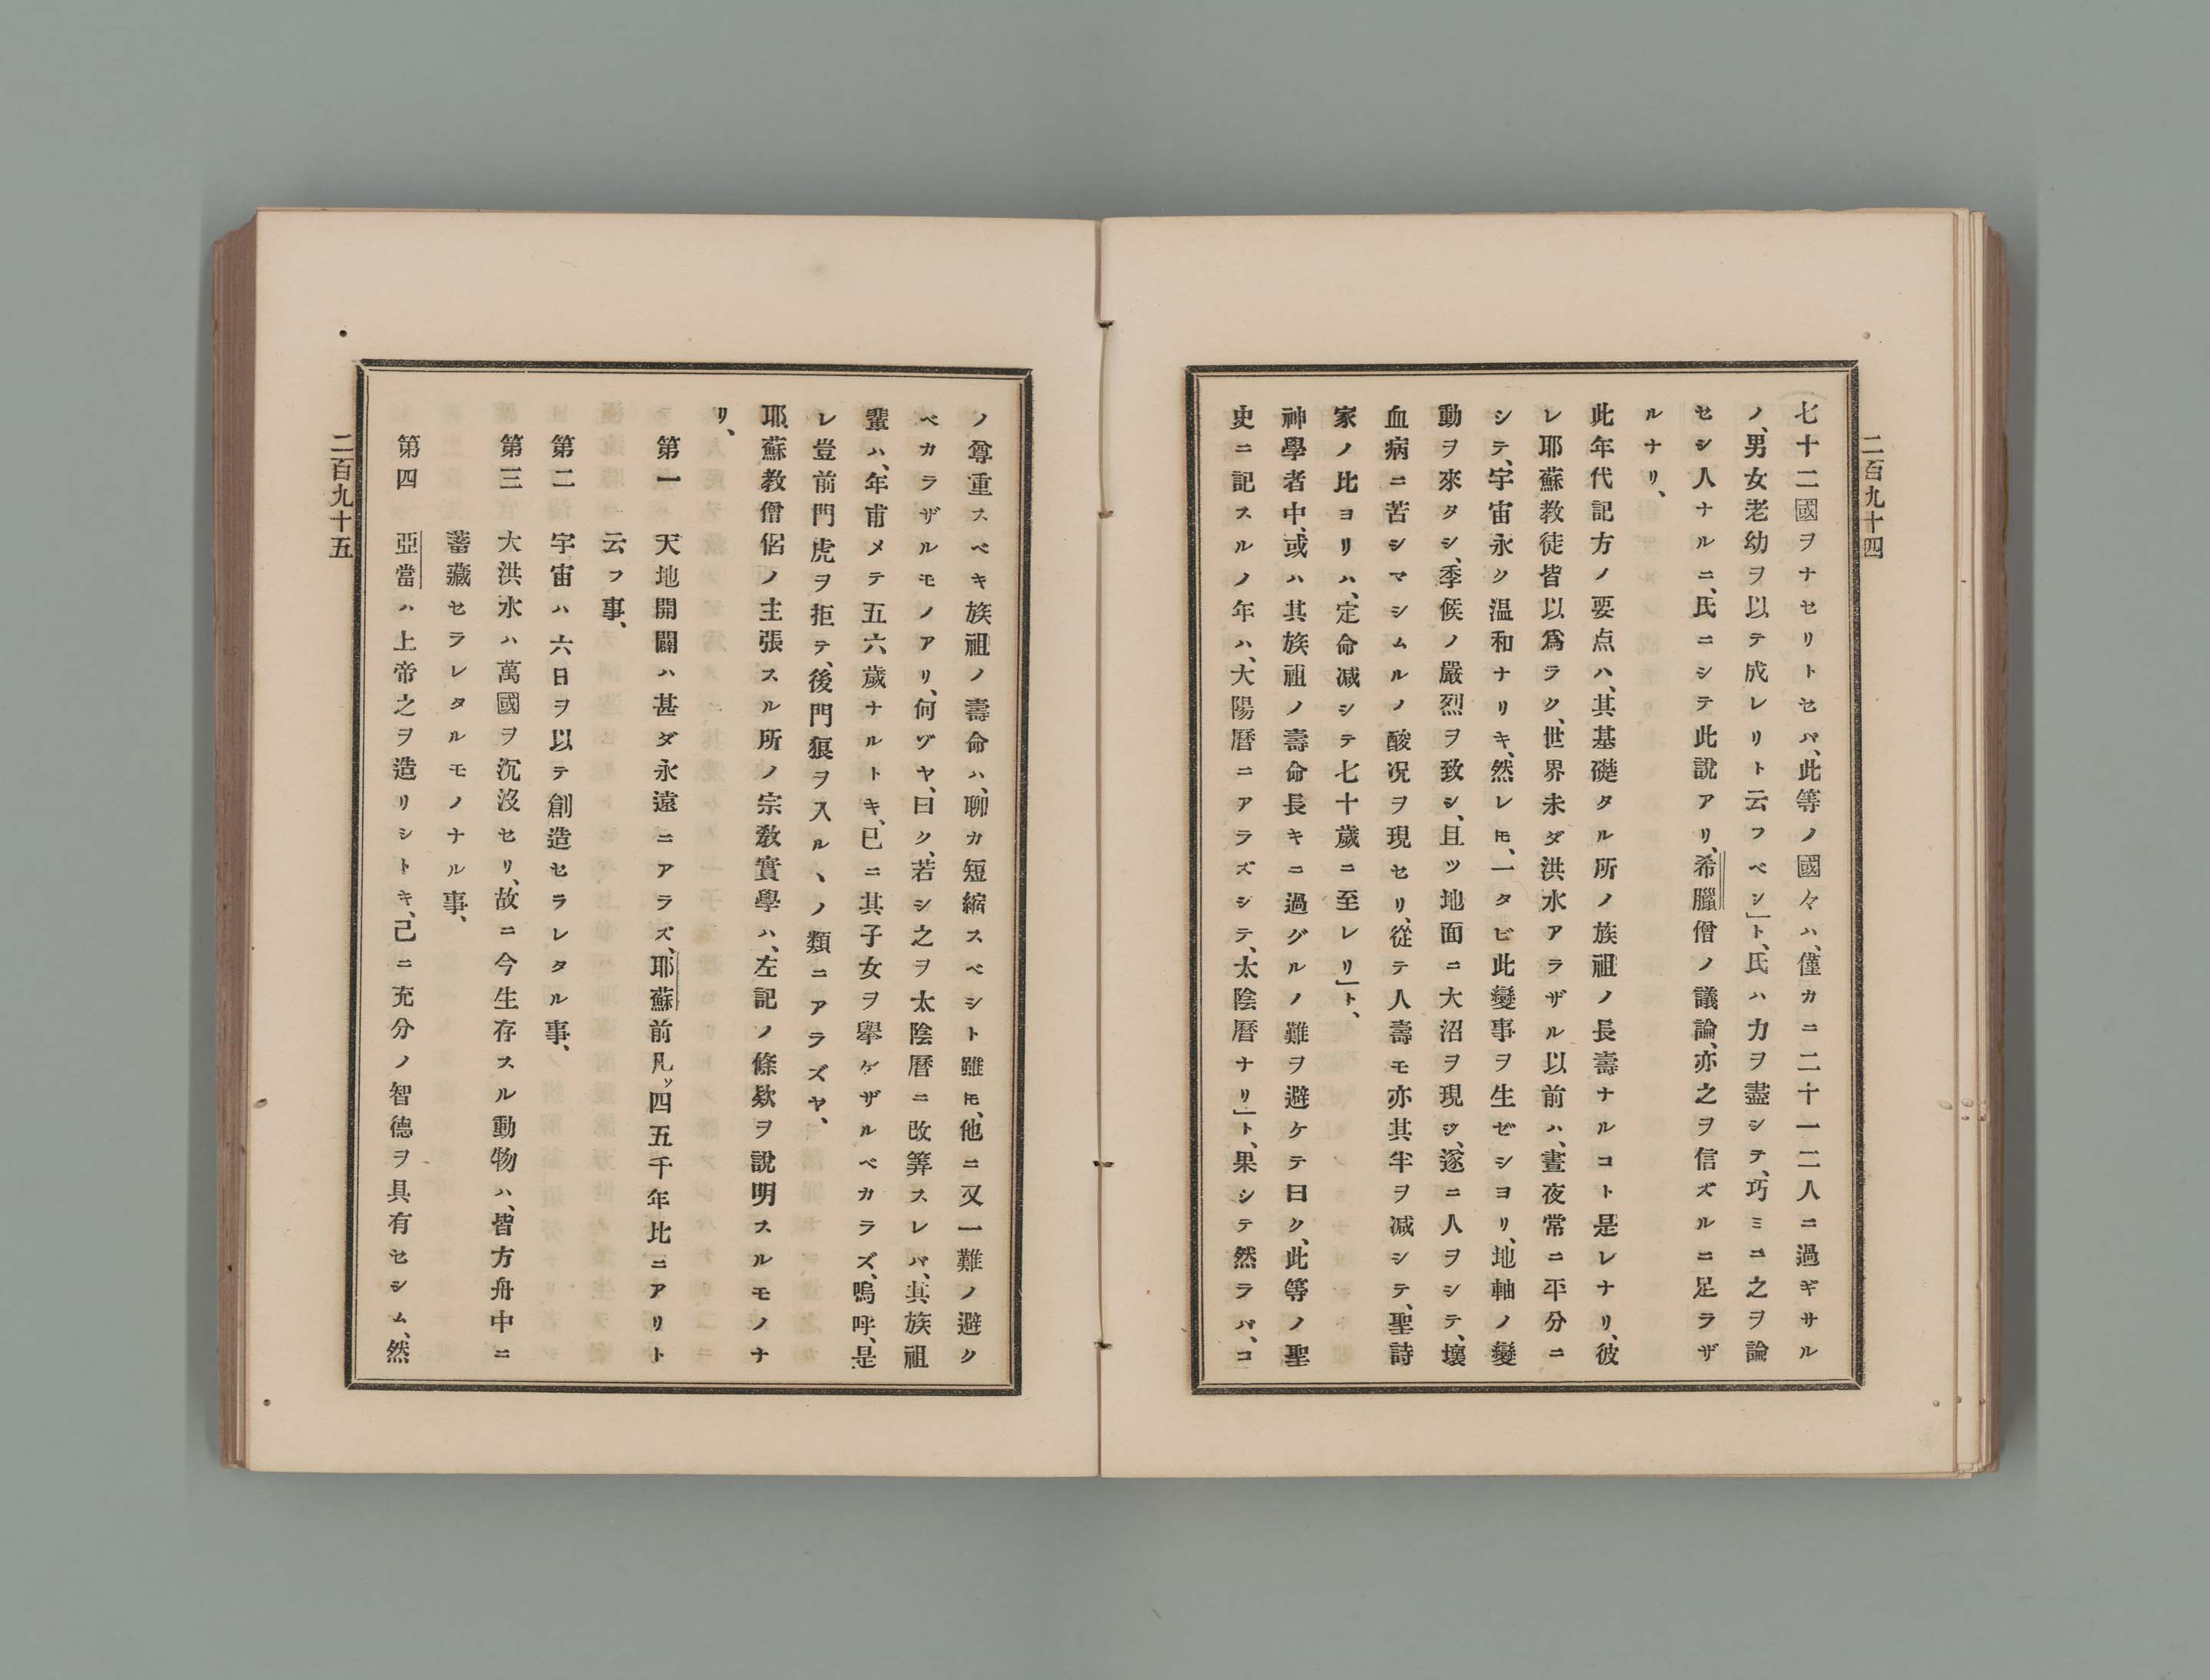 二百九十四
七十二國ヲナセリトセバ、此等ノ國々ハ、僅カニ二十一二人ニ過ギサル
ノ、男女老幼ヲ以テ成レリト云フベシ」ト、氏ハ力ヲ盡シテ、巧ミニ之ヲ論
セシ人ナルニ、氏ニシテ此說アリ、希臘僧ノ議論、亦之ヲ信ズルニ足ラザ
ルナリ、
此年代記方ノ要点ハ、其基礎タル所ノ族祖ノ長壽ナルコト是レナリ、彼
レ耶蘇教徒皆以爲ラク、世界未ダ洪水アラザル以前ハ、晝夜常ニ平分ニ
シテ、宇宙永ク温和ナリキ、然レ𪜈、一タビ此變事ヲ生ゼショリ、地軸ノ變
動ヲ來タシ、季候ノ嚴烈ヲ致シ、且ツ地面ニ大沼ヲ現シ、遂ニ人ヲシテ、壞
血病ニ苦シマシムルノ酸况ヲ現セリ、從テ人壽モ亦其半ヲ减シテ、聖詩
家ノ比ヨリハ、定命减シテ七十歲ニ至レリ」ト、
神學者中、或ハ其族祖ノ壽命長キニ過グルノ難ヲ避ケテ曰ク、此等ノ聖
史ニ記スルノ年ハ、大陽曆ニアラズシテ、太陰曆ナリ」ト、果シテ然ラバ、コ
ノ尊重スベキ族祖ノ壽命ハ、聊カ短縮スベシト雖𪜈、他ニ又一難ノ避ク
ベカラザルモノアリ、何ゾヤ、曰ク、若シ之ヲ太陰曆ニ改筭スレバ、其族祖
輩ハ、年甫メテ五六歲ナルトキ、已ニ其子女ヲ擧ゲザルベカラズ、嗚呼、是
レ豈前門虎ヲ拒テ、後門狼ヲ入ルヽノ類ニアラズヤ、
耶蘇教僧侶ノ主張スル所ノ宗教實學ハ、左記ノ條欵ヲ說明スルモノナ
リ、
第一　天地開闢ハ甚ダ永遠ニアラズ、耶蘇前凡ッ四五千年比ニアリト
云フ事、
第二　宇宙ハ六日ヲ以テ創造セラレタル事、
第三　大洪水ハ萬國ヲ沉沒セリ、故ニ今生存スル動物ハ、皆方舟中ニ
蓄藏セラレタルモノナル事、
第四　亞當ハ上帝之ヲ造リシトキ、己ニ充分ノ智德ヲ具有セシム、然
二百九十五